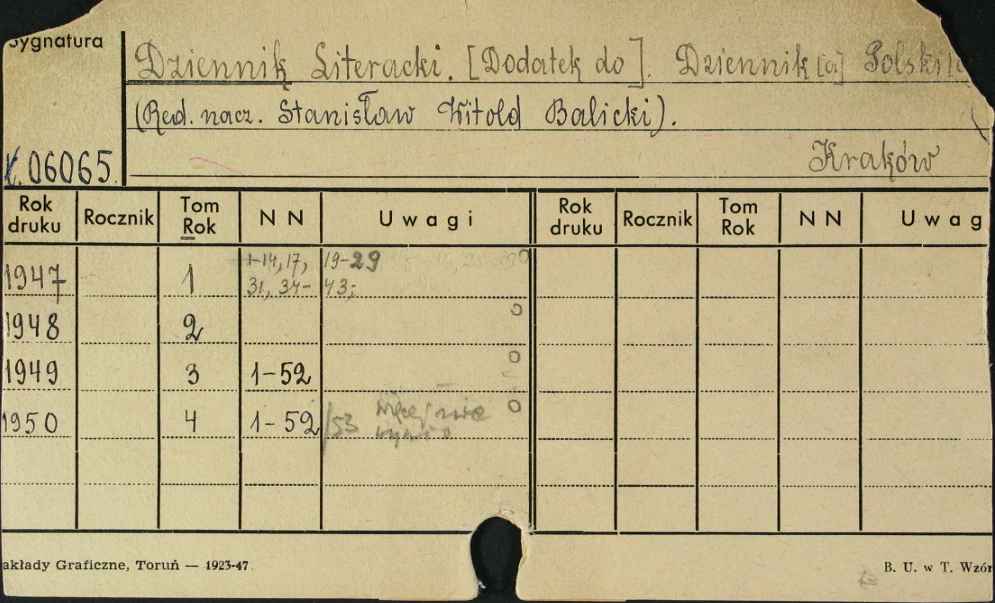 Sygnatura
Dziennik Literacki. [Dodatek do]. Dziennik[a] Polski
(Red. nacz. Stanisław Witold Balicki).
06065. Kraków
Rok druku Rocznik Tom Rok N N Uwagi Rok druku Rocznik Tom Rok N N Uwag
1947 1 1-14, 17, 19-29
31, 34- 43;
1948 2
1949 3 1-52
1950 4 1-52/53 więcej nie
akłady Graficzne, Toruń — 1923-47. B. U. w T. Wzór